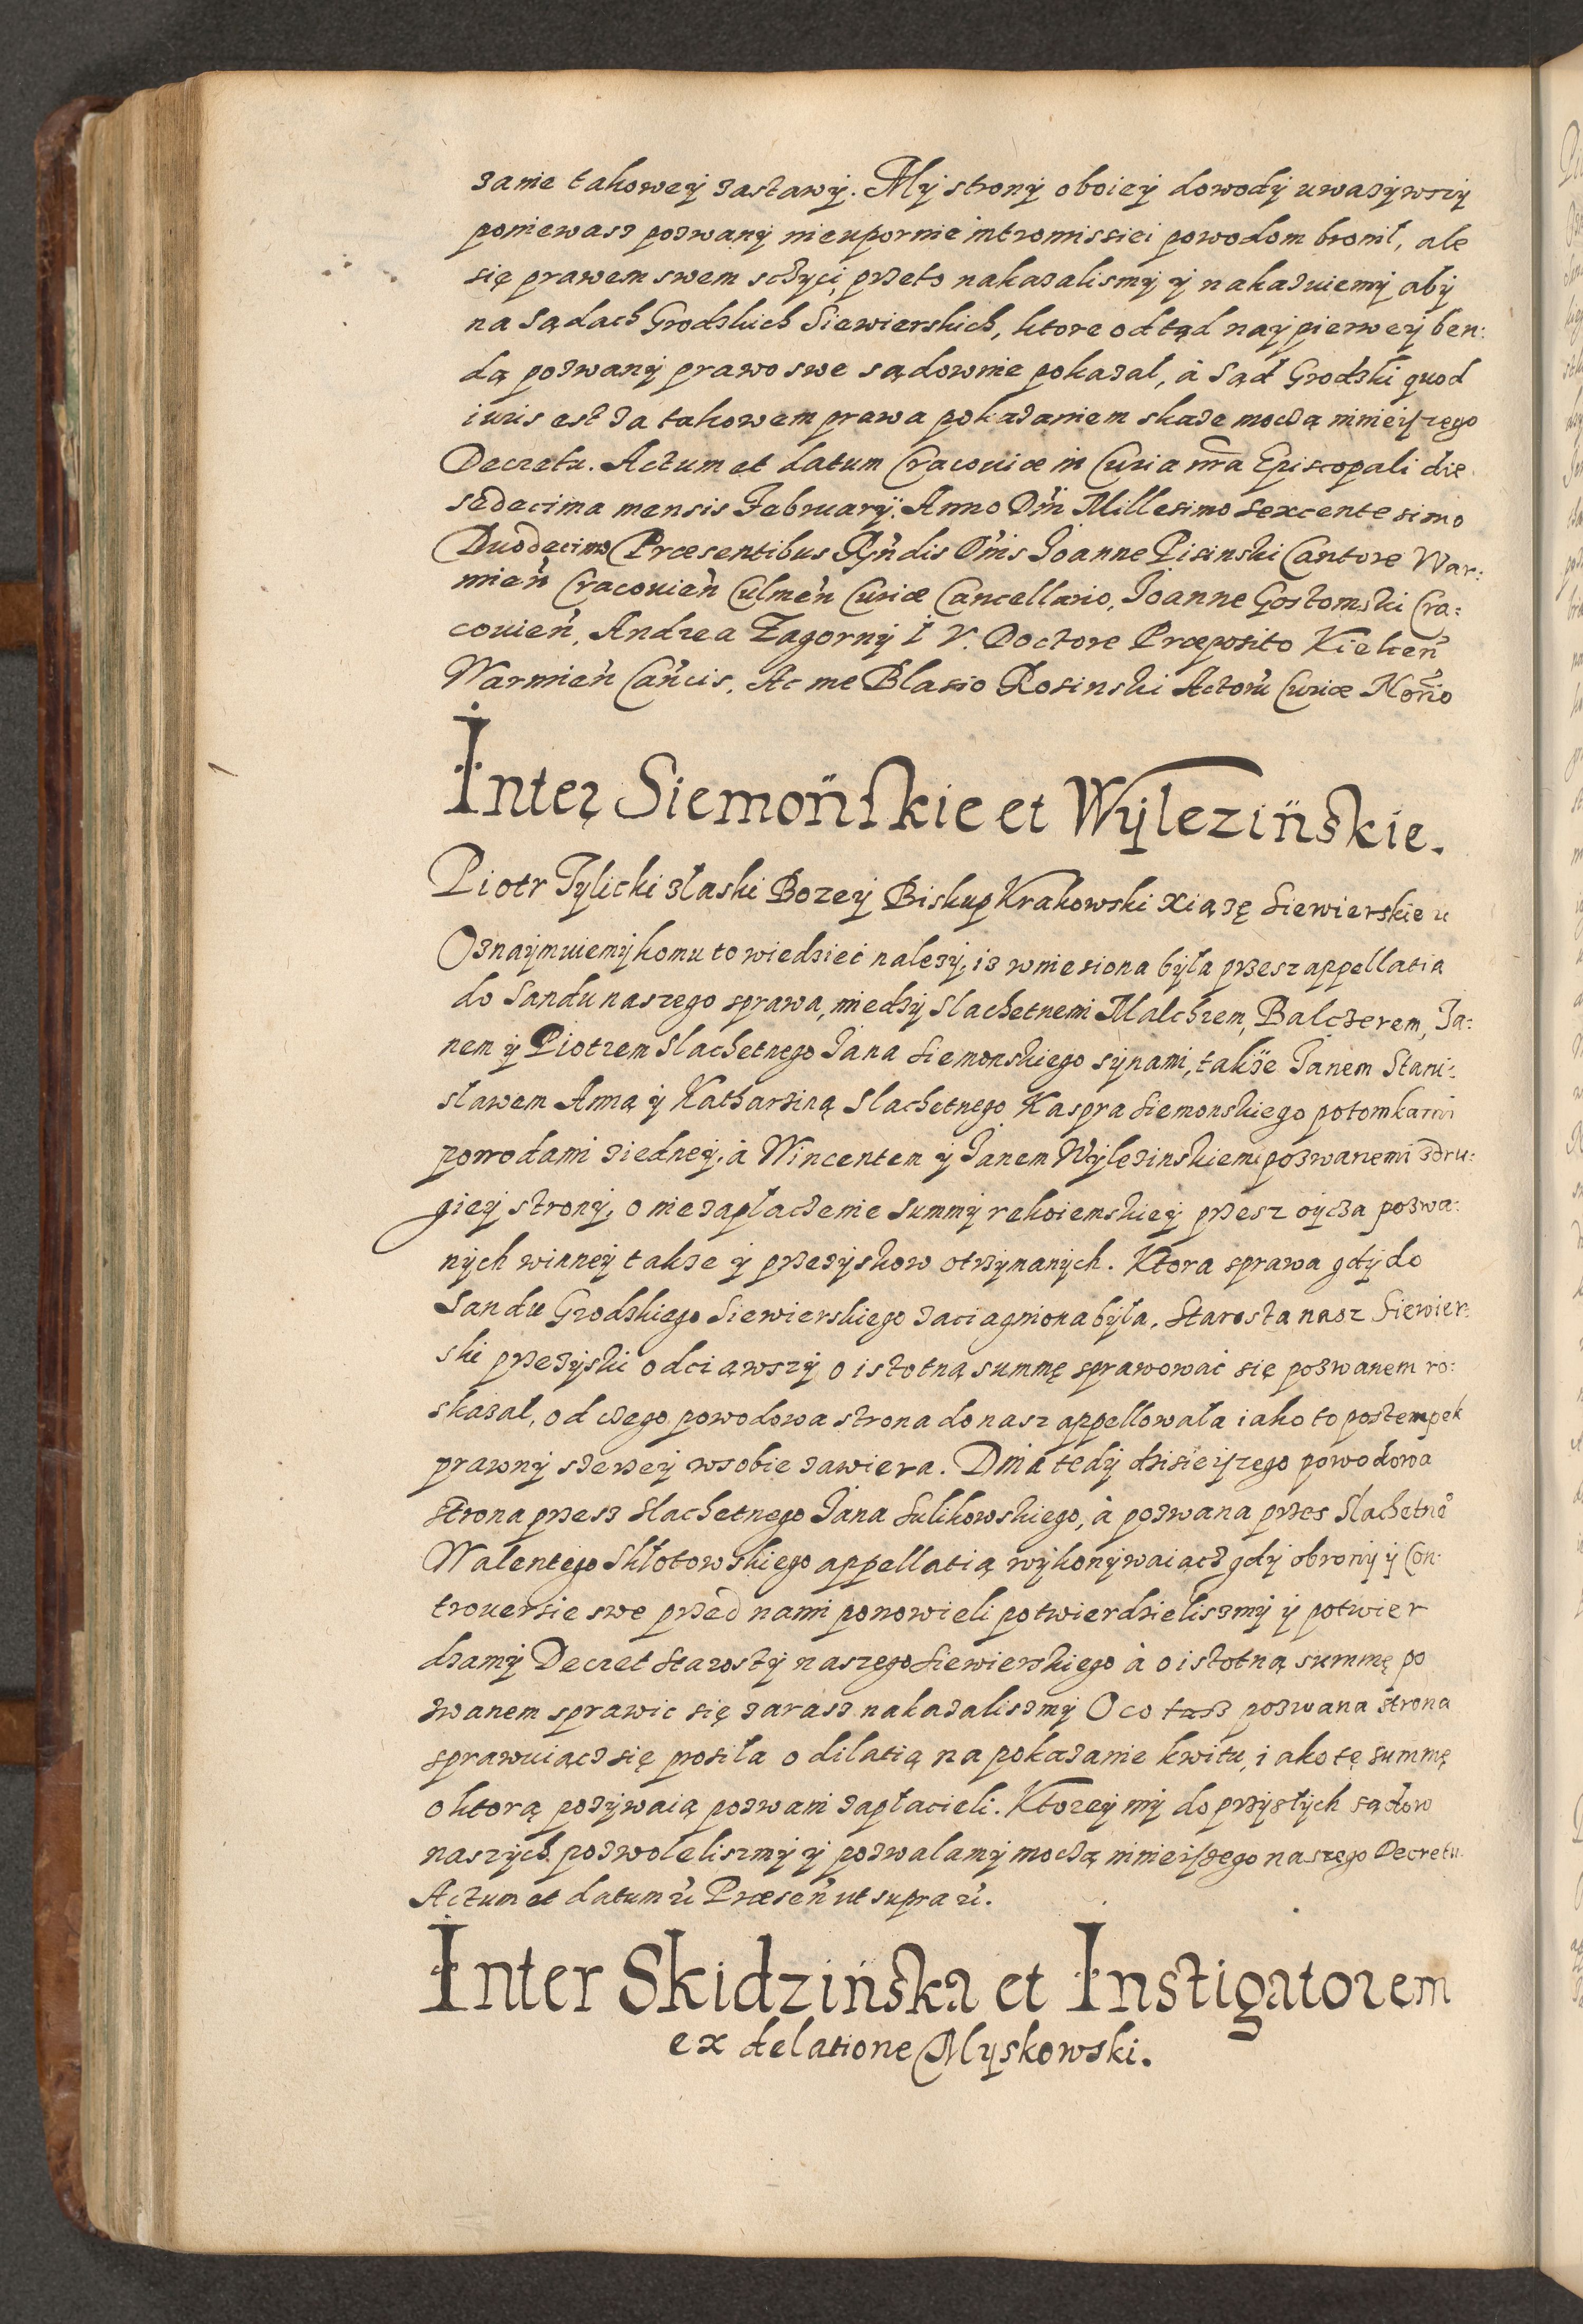 zanie takowey zastawy. My strony oboiey dowody uwazywszy
poniewasz pozwany nieupornie intromissiei powodom bronił, ale
się prawem swem sczyci, przeto nakazalismy y nakazuiemy aby
na Sądach Grodzkich Siewierskich, ktore odtąd naypierwey ben:
dą pozwany prawo swe sądownie pokazał, à Sąd Grodzki quod
iuris est za takowem prawa pokazaniem skaże moczą ninieyszego
Decretu. Actum et datum Cracoviæ in Curia nr̃a Episcopali die
sedecima mensis Februarÿ. Anno Dn̄i Millesimo sexcentesimo
Duodecimo Præsentibus Rn̄dis Dn̄is Joanne Pisinski Cantore War:
mien̄ Cracovien̄ Culmen̄ Curiæ Cancellario, Joanne Gostomski Cra:
covien̄, Andrea Zagorny I V. Doctore Præposito Kielcen̄
Warmien̄ Can̄cis, Ac me Blasio Rosinski Actor̄u Curiæ Not̄rio
Inter Siemoñskie et Wÿlezińskie.
Piotr Tylicki złaski Bozey Biskup Krakowski Xiąże Siewierskie ɛc
Oznaymuiemy komu to wiedzieć należy, iż wniesiona była przesz appellatia
do Sandu naszego sprawa, miedzy Slachetnemi Malchrem, Balczerem, Ja:
nem y Piotrem Slachetnego Jana Siemonskiego synami, także Janem Stani:
sławem Anną y Katharziną Slachetnego Kaspra Siemonskiego potomkami
powodami ziedney, à Wincentem y Janem Wylezinskiemi pozwanemi zdru:
giey strony, o niezapłaczenie Summy rekoiemskiey przesz oycza pozwa:
nych winney także y przezyskow otrzymanych. Ktora sprawa gdy do
Sandu Grodzkiego Siewierskiego zaciagniona była, Starosta nasz Siewier:
ski przezyski odciąwszy o istotną summę sprawować się pozwanem ro:
skazał, od czego powodowa strona do nasz appellowała iako to postempek
prawny szerzey wsobie zawiera. Dnia tedy dzisieyszego powodowa
strona przesz Slachetnego Jana Sulikowskiego, à pozwana przes Slachetneo
Walentego Skłotowskiego appellatią wykonywaiącz gdy obrony y Con:
trouersie swe przed nami ponowieli potwierdzieliszmy y potwier
dzamy Decret Starosty naszego Siewierskiego à o istotną summę po
zwanem sprawic się zarasz nakazaliszmy O co tasz pozwana strona
sprawuiącz się prosiła o dilatią na pokazanie kwitu, iako tę summę
o ktorą pozywaią pozwani zapłacieli. Ktorey my do przyszłych sądow
naszych pozwoleliszmy y pozwalamy moczą ninieyszego naszego Decretu.
Actum et datum ɛc Præsen̄ ut supra ɛc.
Inter Skidzińska et Instigatorem
ex delatione Myskowski.